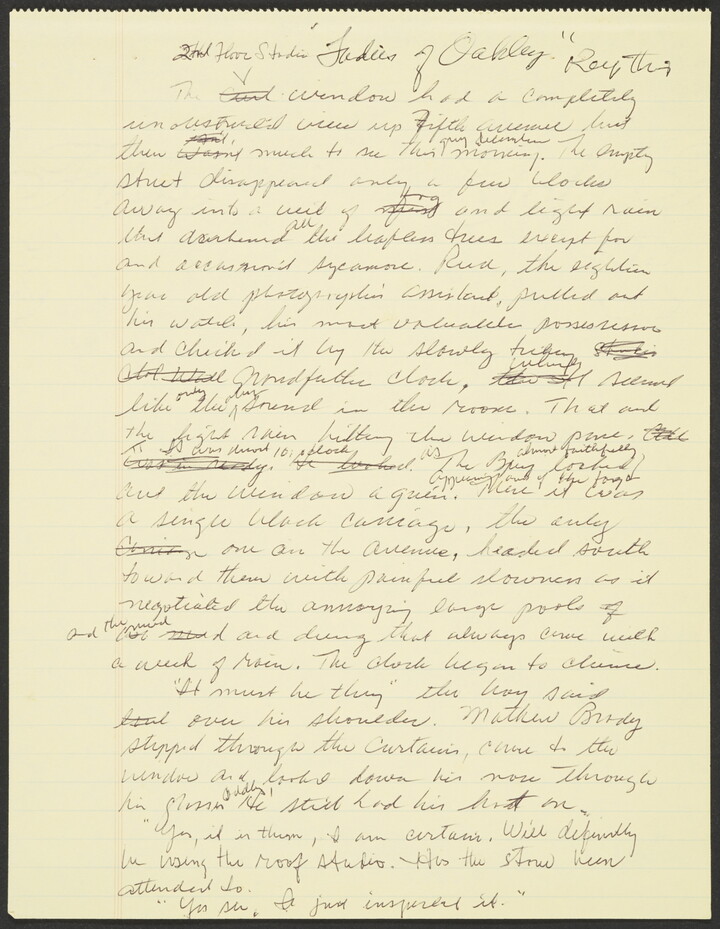 2nd Floor Studio "Ladies of Oakley"
The window had a completely
unobstructed view up Fifth avenue but
then much to see this morning. The empty
street disappeared only a few blocks
away into a veil of fog and light rain
that darkened all the leafless trees except for
and occasional sycamore. Reed, the eighteen
year old photographer's assistant, pulled out
his watch, his most valuable possession
and checked it by the slowly
Grandfather clock, seemed
like the only sound in the room. That and
the light rain hitting the window pane.
It was almost 10 o'clock. The Boy looked
out the window again. There it was
appearing out of the fog
a single black carriage, the only
one on the avenue, headed south
toward them with painful slowness as it
negotiated the annoying large pools of
and the mud and dung that always came with
a week of rain. The clock began to chime.
"It must be they" the boy said
over his shoulder. Mathew Brady
stepped through the curtains, came to the
window and looked down his nose through
his glasses. Oddly, He still had his hat on.
"Yes, it is them, I am certain. Will definitly
be using the roof studio. Has the stove been
attended to.
"Yes sir, I just inspected it."